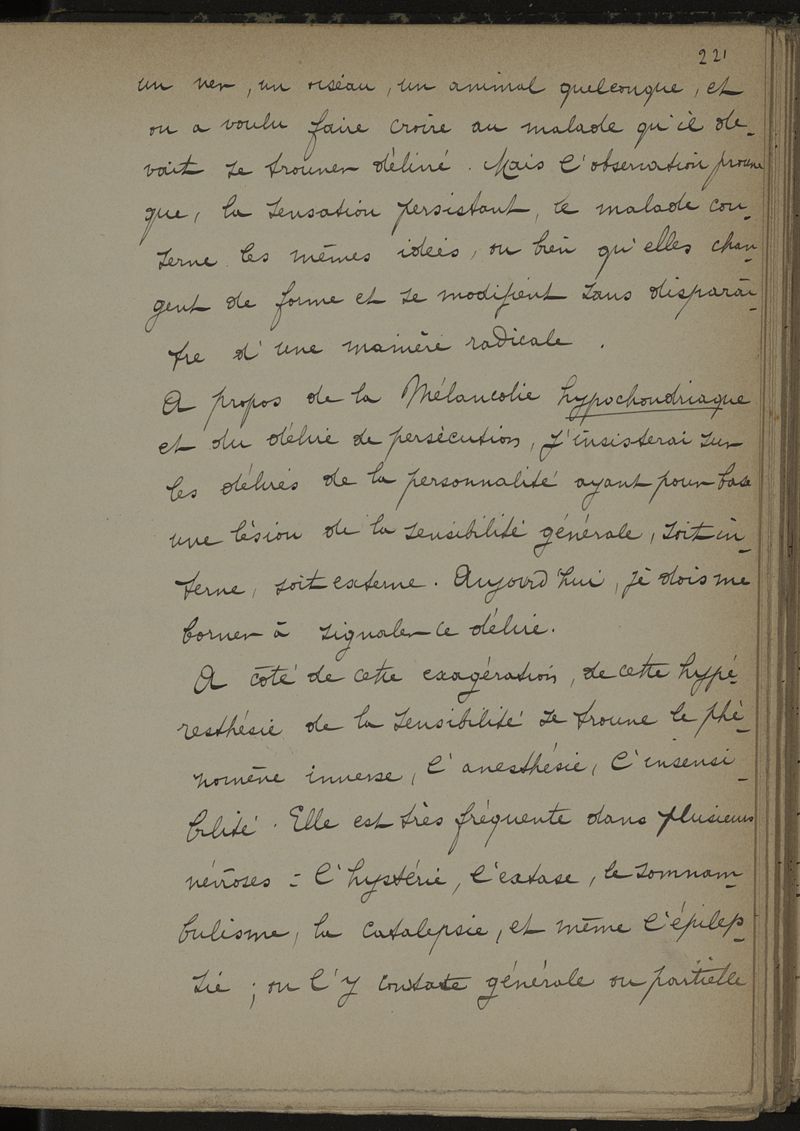 221
un ver, un oiseau, un animal quelconque, et
on a voulu faire croire au malade qu'il de-
vait se trouver délivré. Mais l'observation prouve
que, la sensation persistant, le malade con-
serve les mêmes idées, ou bien qu'elles chan-
gent de forme et se modifient sans disparaî-
tre d'une manière radicale.
A propos de la Mélancolie hypochondriaque
et du délire de persécution, j'insisterai sur
les délires de la personnalité ayant pour base
une lésion de la sensibilité générale, soit in-
terne, soit externe. Aujourd'hui, je dois me
borner à signaler ce délire.
A côté de cette exagération, de cette hypé-
resthésie de la sensibilité se trouve le phé-
nomène inverse, l'anesthésie, l'insensi-
bilité. Elle est très fréquente dans plusieurs
névroses : l'hystérie, l'extase, le somnam-
bulisme, la catalepsie, et même l'épilep-
sie ; on l'y constate générale ou partielle